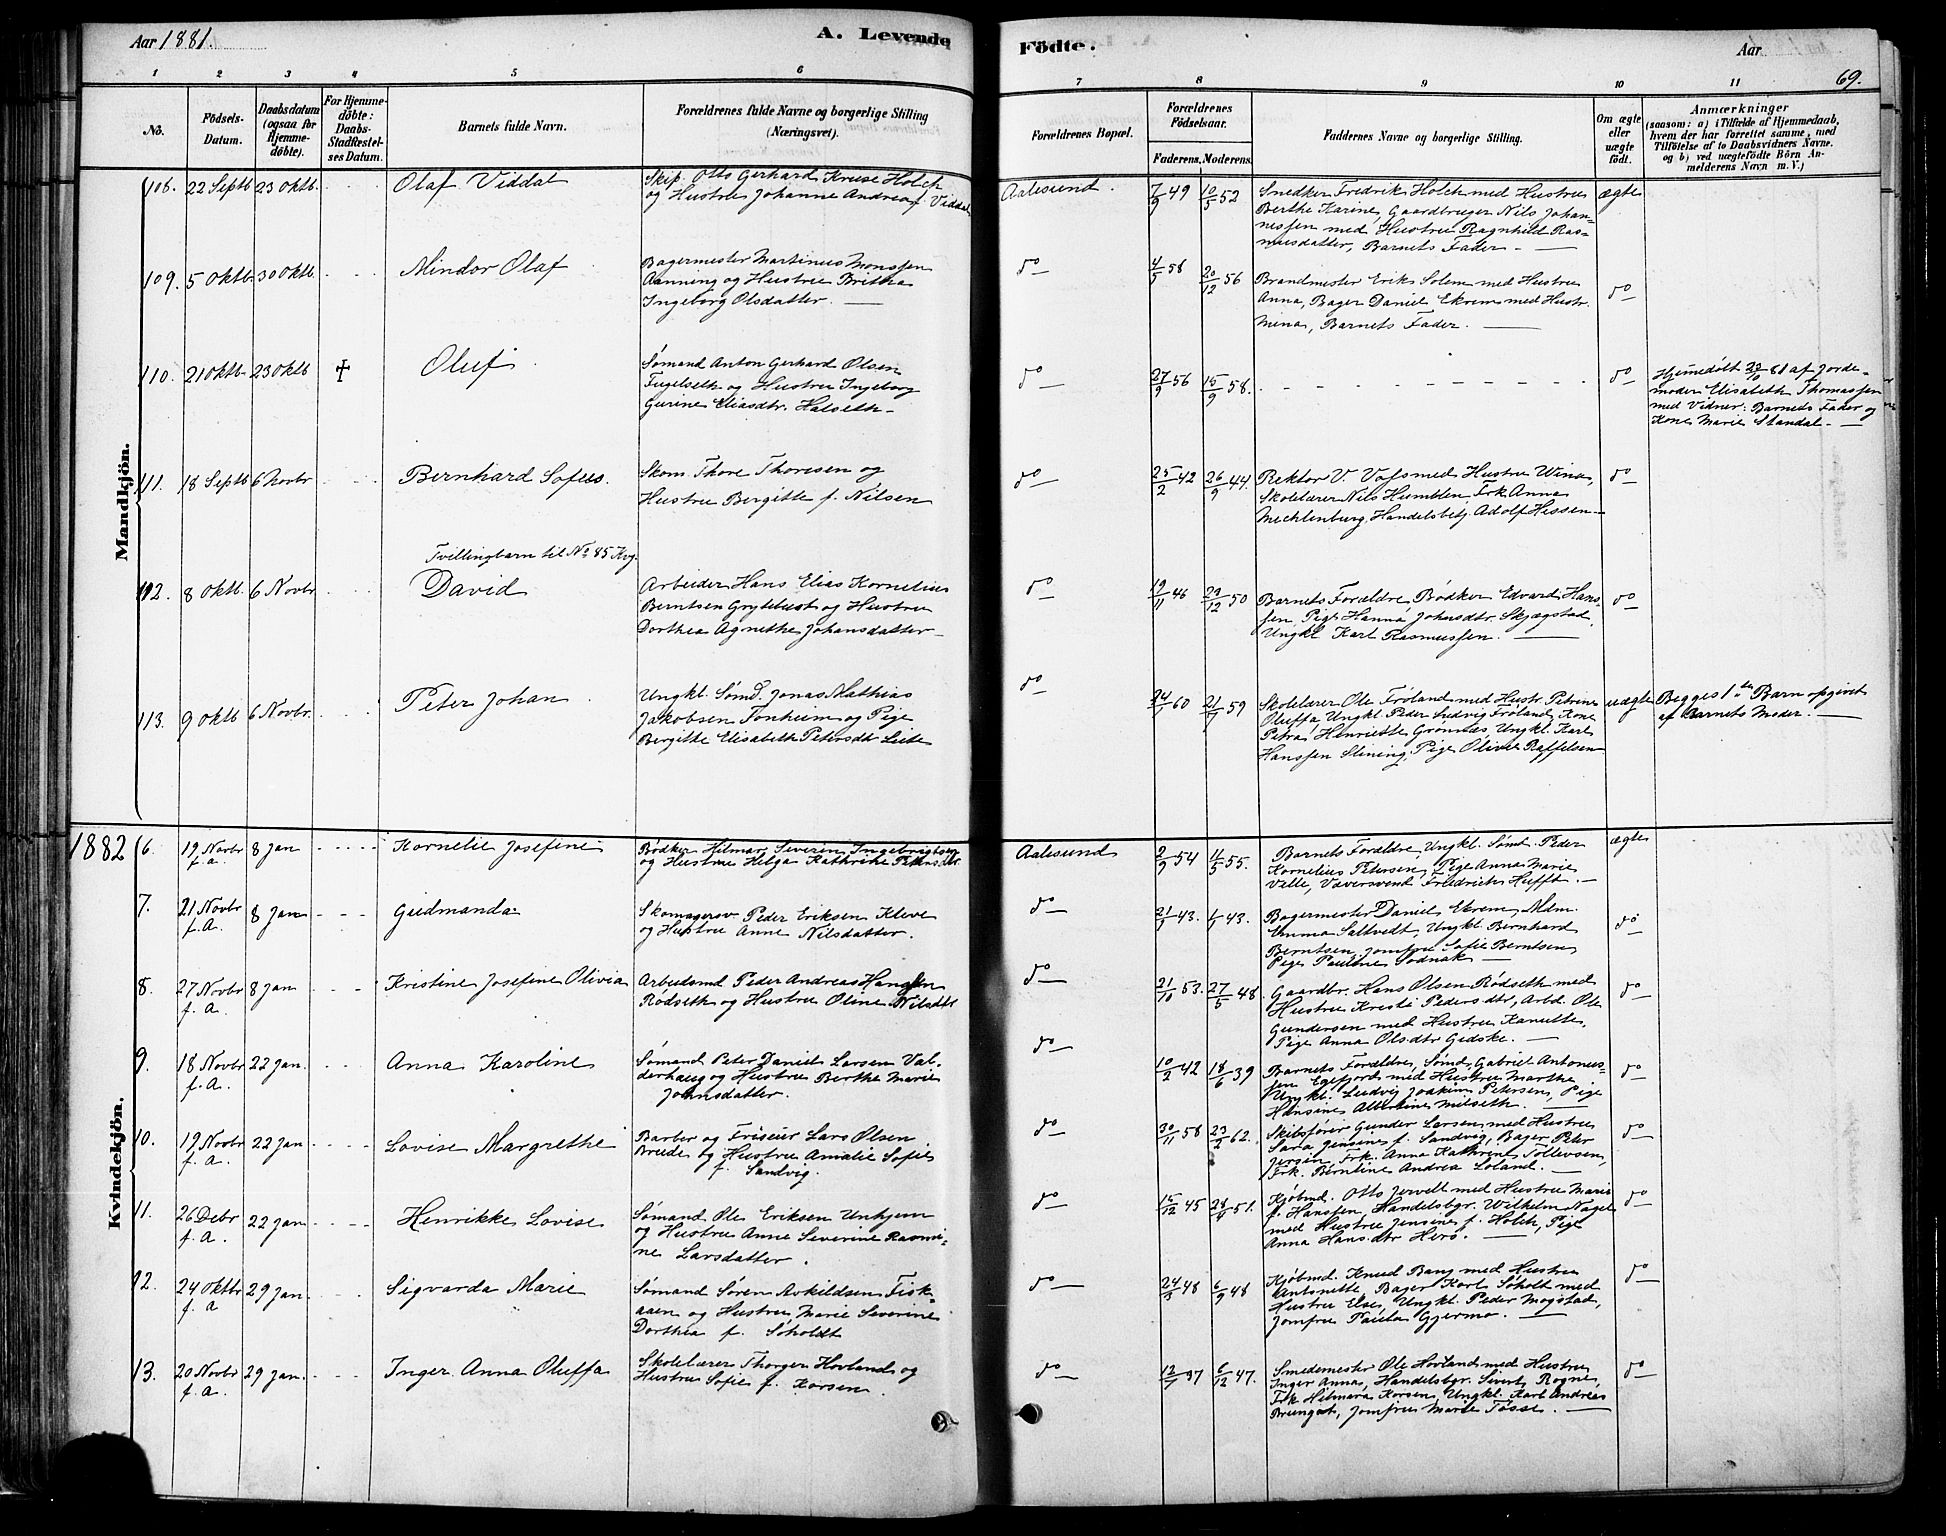 Aar 1881.
A. Levende Födte.
Aar
69.
1 2 3 4 5 6 7 8 9 10 11
No.
Födsels-Datum.
Daabsdatum (ogsaa for Hjemme-döbte).
For Hjemme-döbte: Daabs-Stadfæstel-ses Datum.
Barnets fulde Navn.
Forældrenes fulde Navne og borgerlige Stilling (Næringsvei).
Forældrenes Bopæl.
Forældrenes Födselsaar.
Faderens. Moderens.
Faddernes Navne og borgerlige Stilling.
Om ægte eller uægte födt.
Anmærkninger
(saasom: a) i Tilfælde af Hjemmedaab, hvem der har forrettet samme, med Tilföielse af to Daabsvidners Navne. og b) ved uægtefödte Börn Anmelderens Navn m. V.)
Mandkjön.
108. 22 Septb 23 Oktb. Olaf Viddal
Skip. Otto Gerhard Kruse Holck
og Hustru Johanne Andrea f. Viddal
Aalesund. 7/9 49 10/5 52
Snedker Fredrik Holck med Hustru
Berthe Karine, Gaardbruger Nils Johan-
nessen med Hustru Ragnhild Ras-
musdatter, Barnets Fader.
ægte
109. 5 Oktb. 30 Oktb. Mindor Olaf
Bagermester Martinus Monssen
Aanning og Hustru Britha
Ingeborg Olsdatter.
do 4/5 58 20/12 56
Brandmester Erik Solem med Hustru
Anna, Bager Daniel Ekrem med Hustr.
Mina, Barnets Fader.
do
110. 21 Oktb. 23 Oktb Oluf
Sømand Anton Gerhard Olsen
Fugelseth og Hustru Ingeborg
Gurine Eliasdtr. Halseth
do 27/9 56 15/9 58.
do
Hjemmedøbt 22/10 81 af Jorde-
moder Elisabeth Thomassen
med Vidner: Barnets Fader og
Kone Marie Standal.
111. 18 Septb 6 Novbr Bernhard Sofus.
Skom. Thore Thoresen og
Hustru Bergitte f. Nilsen
do 25/2 42 26/9 44.
Rektor V. Voss med Hustru Wina,
Skolelærer Nils Humblen, Frk. Anna
Mechlenburg, Handelsbetj. Adolf Hessen
do
Tvillingbarn til No 85 Kvg.
112. 8 Oktb. 6 Novbr David
Arbeider Hans Elias Kornelius
Berntsen Grytehust og Hustru
Dorthea Agnethe Johansdatter
do 19/11 46 29/12 50
Barnets Forældre, Bødker Edvard Hans-
sen, Pige Hanna Johnsdtr. Skjægstad,
Ungkl. Karl Rasmussen.
do
113. 9 Oktb 6 Novbr. Peter Johan
Ungkl. Sømd. Jonas Mathias
Jakobsen Tonheim og Pige
Bergitte Elisabeth Petersdtr Leite
do 24/1 60 21/7 59
Skolelærer Ole Frøland med Hustr. Petrine
Oluffa, Ungkl. Peder Ludvig Frøland, Kone
Petra Henriette Grønnæs, Ungkl. Karl
Hanssen Slining, Pige Olivie Raffelsen
uægte
Begges 1ste Barn opgivet
af Barnets Moder.
1882
Kvindekjön.
6. 19 Novbr f.a. 8 Jan Kornelie Josefine
Bødker Hilmar Severin Ingebrigtsen
og Hustru Helga Kathrine Petersdtr
Aalesund 2/9 54 11/5 55.
Barnets Forældre, Ungkl. Sømd. Peder
Kornelius Petersen, Pige Anna Marie
Valle, Væversvend Friedrich Hufft.
ægte
7. 21 Novbr f.A. 8 Jan Gudmanda
Skomagersv. Peder Eriksen Kleve
og Hustru Anne Nilsdatter.
do 21/1 43. 1/1 43.
Bagermester Daniel Ekrem, Mdm.
Emma Saltvedt, Ungkl. Bernhard
Berntsen, Jomfru Sofie Berntsen,
Pige Pauline Sødnak
do
8. 27 Novbr f.A. 8 Jan Kristine Josefine Olivia
Arbeidsmd Peder Andreas Hanssen
Rødseth og Hustru Oline Nilsdtr
do 21/10 53. 27/5 48.
Gaardbr. Hans Olsen Rødseth med
Hustru Kristi Pedersdtr, Arbd. Ole
Gundersen med Hustru Kanutte,
Pige Anna Olsdtr Gidske.
do
9. 18 Novbr f.A. 22 Jan. Anna Karoline
Sømand Peter Daniel Larsen Val-
derhaug og Hustru Berthe Marie
Johnsdatter.
do 10/2 42 18/6 39
Barnets Forældre, Sømd. Gabriel Antonius-
sen Egefjord med Hustru Marthe
Ungkl. Ludvig Joakim Petersen, Pige
Hansine Albertine Milseth.
do
10. 19 Novbr f.a. 22 Jan Lovise Margrethe
Barber og Friseur Lars Olsen
Breide og Hustru Amalie Sofie
f. Sandvig.
do 30/11 58 23/2 62.
Skibsfører Gunder Larsen med Hustru
Sara Jensine f. Sandvig, Bager Peter
Jersin, Frk. Anna Kathrine Tollevsen,
Frk. Berntine Andrea Loland.
do
11. 26 Debr f.A. 22 Jan Henrikke Lovise
Sømand Ole Eriksen Unhjem
og Hustru Anne Severine Rasmi-
ne Larsdatter.
do 15/12 45 24/4 51.
Kjøbmd. Otto Jervell med Hustru Marie
f. Hanssen, Handelsbgr. Wilhelm Nagel
med Hustru Jensine f. Holck, Pige
Anna Hansdtr Herø.
do
12. 24 Oktbr f.a 29 Jan. Sigvarda Marie
Sømand Søren Askildsen Fisk-
aaen og Hustru Marie Severine
Dorthea f. Søholdt
do 24/3 48 6/9 48
Kjøbmd. Knud Bang med Hustru
Antonette, Bager Karl Søholt med
Hustru Else, Ungkl. Peder Mogstad,
Jomfru Paula Gjermo.
do
13. 20 Novbr f.a. 29 Jan. Inger Anna Oluffa
Skolelærer Thorger Hovland og
Hustru Sofie f. Korsen.
do 12/7 37 6/12 47.
Smedemester Ole Hovland med Hustru
Inger Anna, Handelsbgr. Sivert Rogne,
Frk Hilmara Korsen, Ungkl. Karl Andreas
Brungot, Jomfru Marie Tøsse.
do